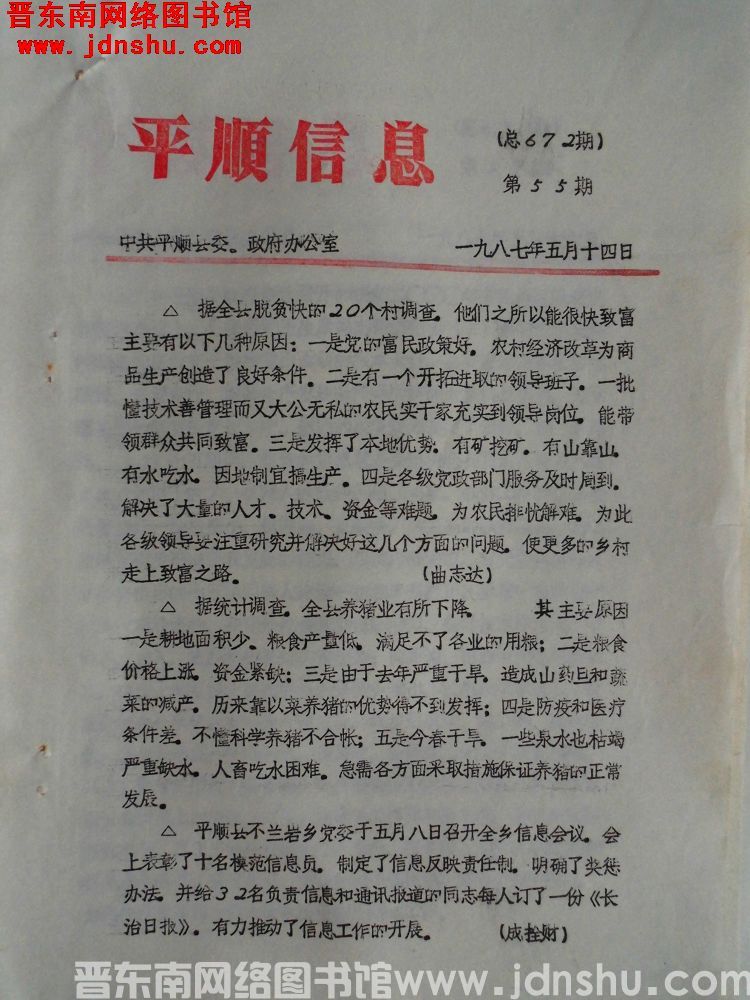 晋东南网络图书馆
www.jdnshu.com
平顺信息
(总672期)
第55期
中共平顺县委。政府办公室
一九八七年五月十四日
△ 据全县脱贫快的20个村调查。他们之所以能很快致富
主要有以下几种原因：一是党的富民政策好。农村经济改革为商
品生产创造了良好条件。二是有一个开拓进取的领导班子。一批
懂技术善管理而又大公无私的农民实干家充实到领导岗位。能带
领群众共同致富。三是发挥了本地优势。有矿挖矿。有山靠山。
有水吃水。因地制宜搞生产。四是各级党政部门服务及时周到。
解决了大量的人才、技术、资金等难题。为农民排忧解难。为此
各级领导要注重研究并解决好这几个方面的问题。使更多的乡村
走上致富之路。 (曲志达)
△ 据统计调查。全县养猪业有所下降。 其主要原因
一是耕地面积少。粮食产量低。满足不了各业的用粮；二是粮食
价格上涨。资金紧缺；三是由于去年严重干旱。造成山药旦和蔬
菜的减产。历来靠以菜养猪的优势得不到发挥；四是防疫和医疗
条件差。不懂科学养猪不合帐；五是今春干旱。一些泉水也枯竭
严重缺水。人畜吃水困难。急需各方面采取措施保证养猪的正常
发展。
△ 平顺县不兰岩乡党委于五月八日召开全乡信息会议。会
上表彰了十名模范信息员。制定了信息反映责任制。明确了奖惩
办法。并给32名负责信息和通讯报道的同志每人订了一份《长
治日报》。有力推动了信息工作的开展。 (成拴财)
晋东南网络图书馆www.jdnshu.com